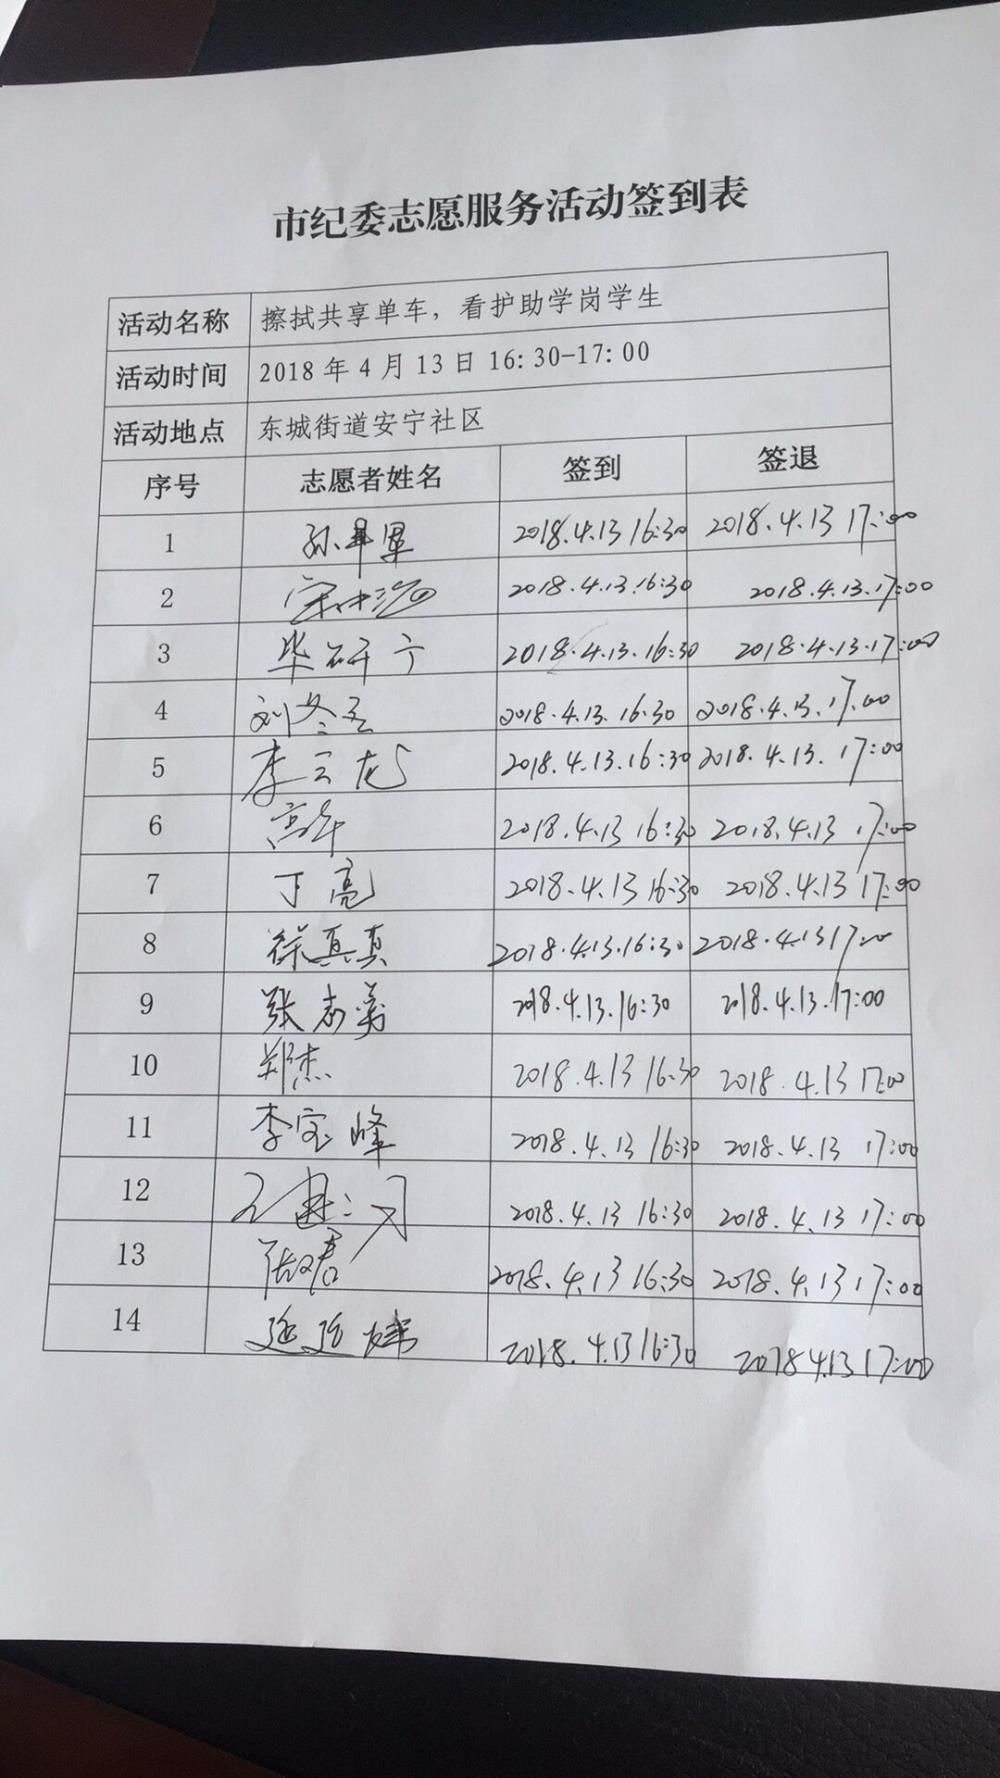 市纪委志愿服务活动签到表
活动名称 擦拭共享单车，看护助学岗学生
活动时间 2018年4月13日16:30-17:00
活动地点 东城街道安宁社区
序号 志愿者姓名 签到 签退
1 孙 2018.4.13 16:30 2018.4.13 17:00
2 宋 2018.4.13.16:30 2018.4.13.17:00
3 毕研宁 2018.4.13.16:30 2018.4.13.17:00
4 刘冬 2018.4.13.16:30 2018.4.13.17:00
5 李云龙 2018.4.13.16:30 2018.4.13.17:00
6 高 2018.4.13 16:30 2018.4.13 17:00
7 丁亮 2018.4.13 16:30 2018.4.13 17:00
8 徐真真 2018.4.13.16:30 2018.4.13 17:00
9 张志勇 2018.4.13.16:30 2018.4.13.17:00
10 郑杰 2018.4.13 16:30 2018.4.13 17:00
11 李宝峰 2018.4.13 16:30 2018.4.13 17:00
12 2018.4.13 16:30 2018.4.13 17:00
13 张 2018.4.13 16:30 2018.4.13 17:00
14 2018.4.13 16:30 2018 4.13 17:00